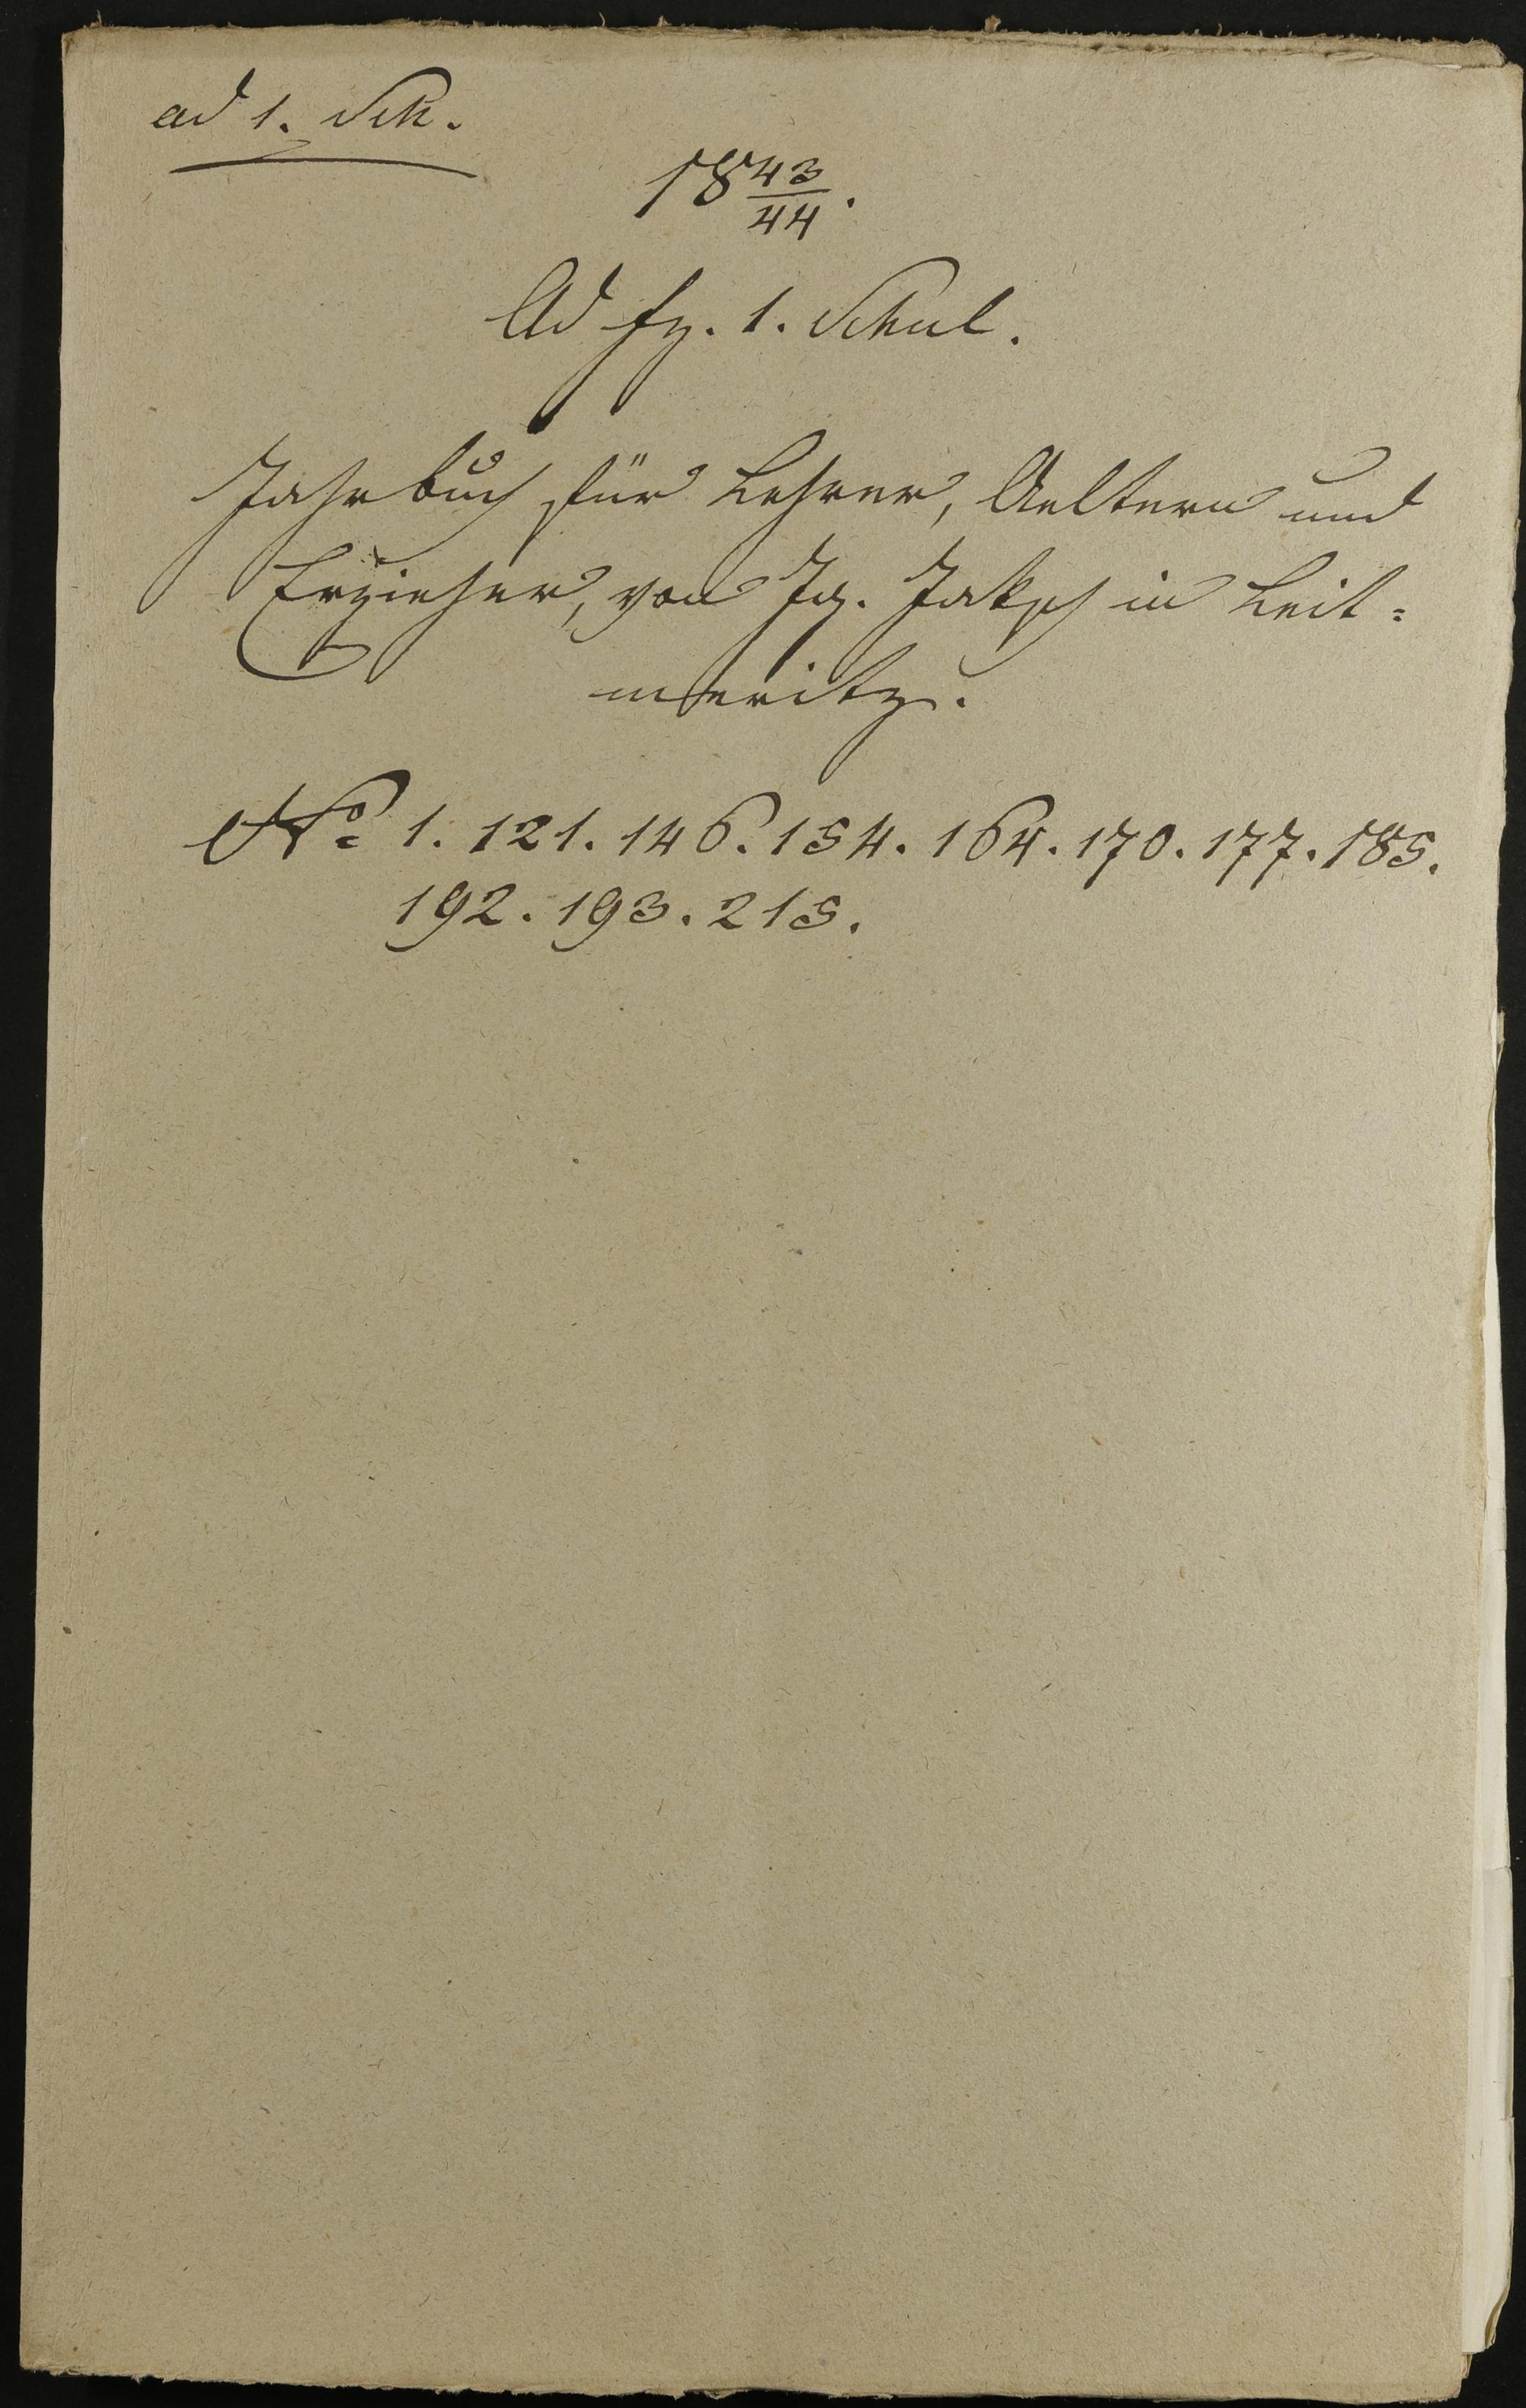 ad 1. Sch.
18 43/44.
Ad fz. 1. Schul.
Jahrbuch für Lehrer, Aeltern und
Erzieher, von Ig. Jaksch in Leit=
meritz.
No 1. 121. 146. 154. 164. 170. 177. 185.
192. 193. 215.